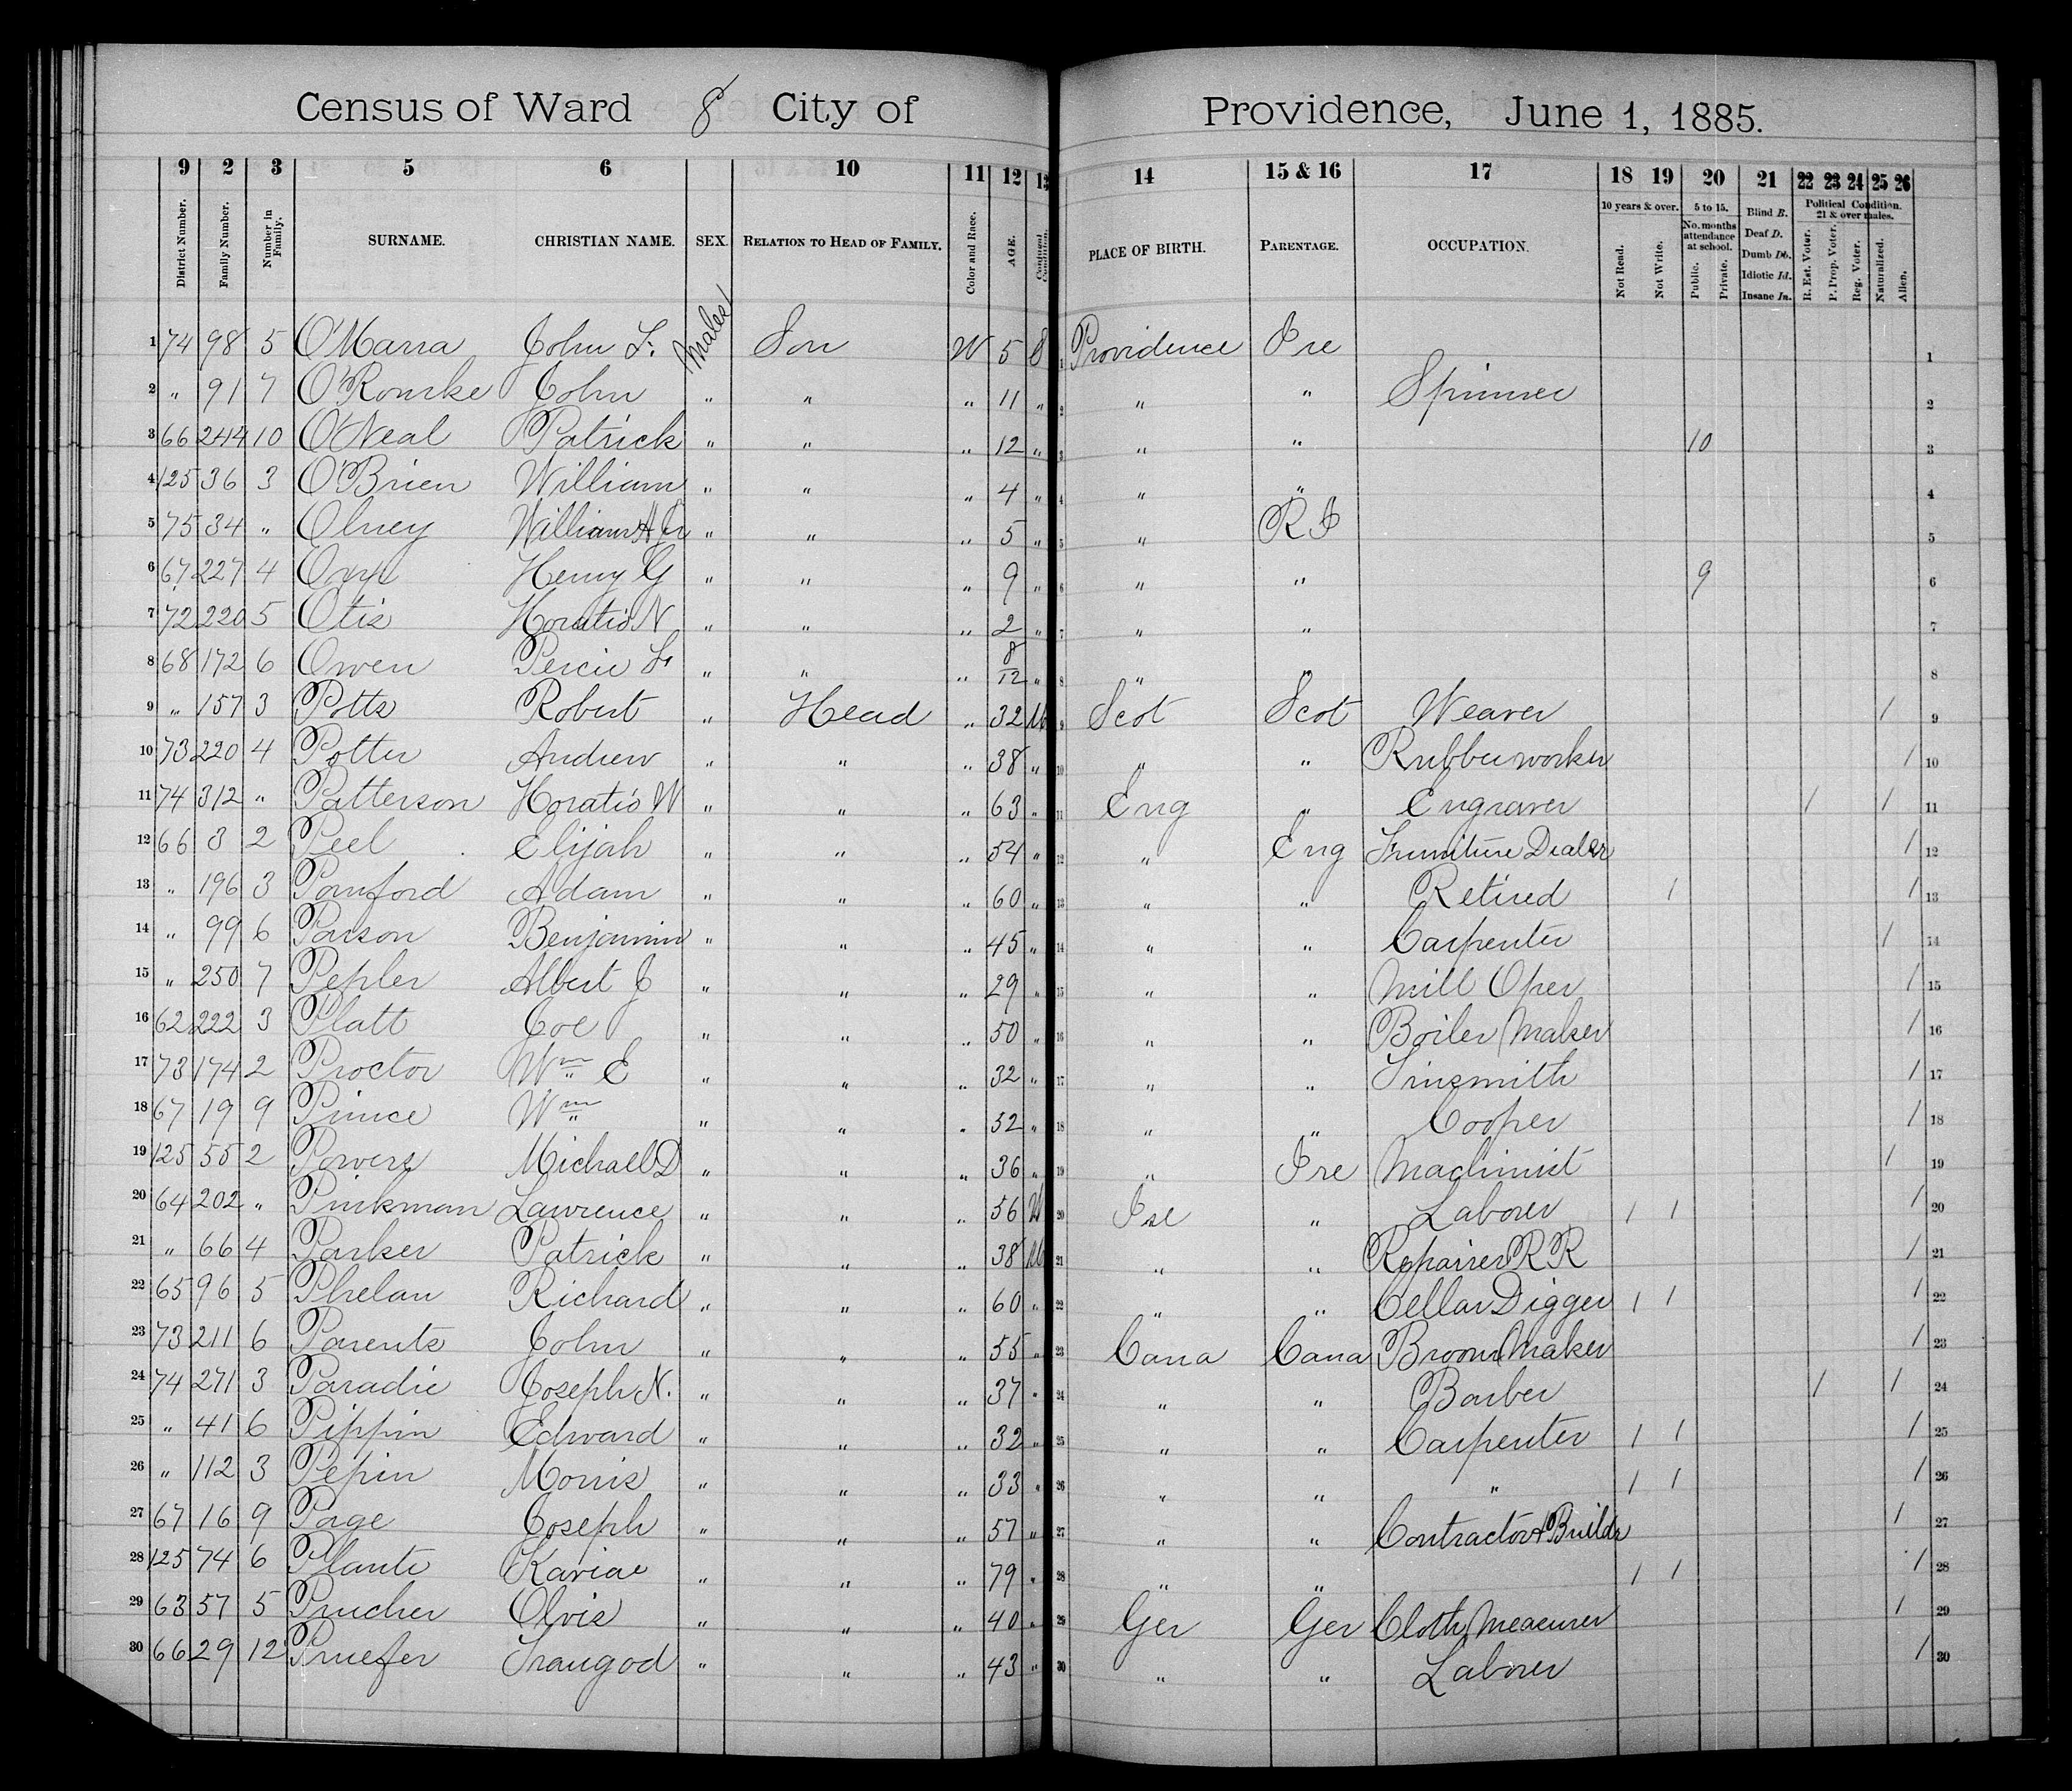 Census of Ward 8 City of Providence, June 1, 1885.
9 2 3 5 6 10 11 12 13 14 15 & 16 17 18 19 20 21 22 23 24 25 26
District Number. Family Number. Number in Family. SURNAME. CHRISTIAN NAME. SEX. RELATION TO HEAD OF FAMILY. Color and Race. AGE. Conjugal Condition. PLACE OF BIRTH. PARENTAGE. OCCUPATION. 10 years & over. Not Read. Not Write. 5 to 15. No. months attendance at school. Public. Private. Blind B. Deaf D. Dumb Db. Idiotic Id. Insane In. Political Condition. 21 & over males. R. Est. Voter. P. Prop. Voter. Reg. Voter. Naturalized. Alien.
1 74 98 5 O'Mara John F. Males Son W 5 S 1 Providence Ire 1
2 " 91 7 O'Rourke John " " " 11 " 2 " " Spinner 2
3 66 244 10 O'Neal Patrick " " " 12 " 3 " " 10 3
4 125 36 3 O'Brien William " " " 4 " 4 " " 4
5 75 34 " Olney William H Jr " " " 5 " 5 " R I 5
6 67 227 4 Henry G " " " 9 " 6 " " 9 6
7 72 220 5 Otis Horatio N " " " 2 " 7 " " 7
8 68 172 6 Owen Percie F " " " 8/12 " 8 " " 8
9 " 157 3 Potts Robert " Head " 32 M 9 Scot Scot Weaver / 9
10 73 220 4 Potter Andrew " " " 38 " 10 " " Rubber worker / 10
11 74 312 " Patterson Horatio W " " " 63 " 11 Eng " Engraver / / 11
12 66 3 2 Peel Elijah " " " 54 " 12 " Eng Furniture Dealer / 12
13 " 196 3 Pomford Adam " " " 60 " 13 " " Retired 1 / 13
14 " 99 6 Parson Benjamin " " " 45 " 14 " " Carpenter / 14
15 " 250 7 Pepler Albert J " " " 29 " 15 " " Mill Oper / 15
16 62 222 3 Platt Joe " " " 50 " 16 " " Boiler Maker / 16
17 73 174 2 Proctor Wm E " " " 32 " 17 " " Tinsmith / 17
18 67 19 9 Prince Wm " " " 52 " 18 " " Cooper / 18
19 125 55 2 Powers Michael D " " " 36 " 19 " Ire Machinist / 19
20 64 202 " Pinkman Lawrence " " " 56 W 20 Ire " Laborer 1 1 / 20
21 " 66 4 Parker Patrick " " " 38 M 21 " " Repairer R R / 21
22 65 96 5 Phelan Richard " " " 60 " 22 " " Cellar Digger 1 1 / 22
23 73 211 6 Parents John " " " 55 " 23 Cana Cana Broom Maker / 23
24 74 271 3 Paradie Joseph N. " " " 37 " 24 " " Barber / / 24
25 " 41 6 Pippin Edward " " " 32 " 25 " " Carpenter 1 1 / 25
26 " 112 3 Pepin Morris " " " 33 " 26 " " " 1 1 / 26
27 67 16 9 Page Joseph " " " 57 " 27 " " Contractor & Buildr / 27
28 125 74 6 Plante Kaviae " " " 79 " 28 " " 1 1 / 28
29 63 57 5 Prucher Olvis " " " 40 " 29 Ger Ger Cloth Measurer / 29
30 66 29 12 Pruefer Traugod " " " 43 " 30 " " Laborer / 30